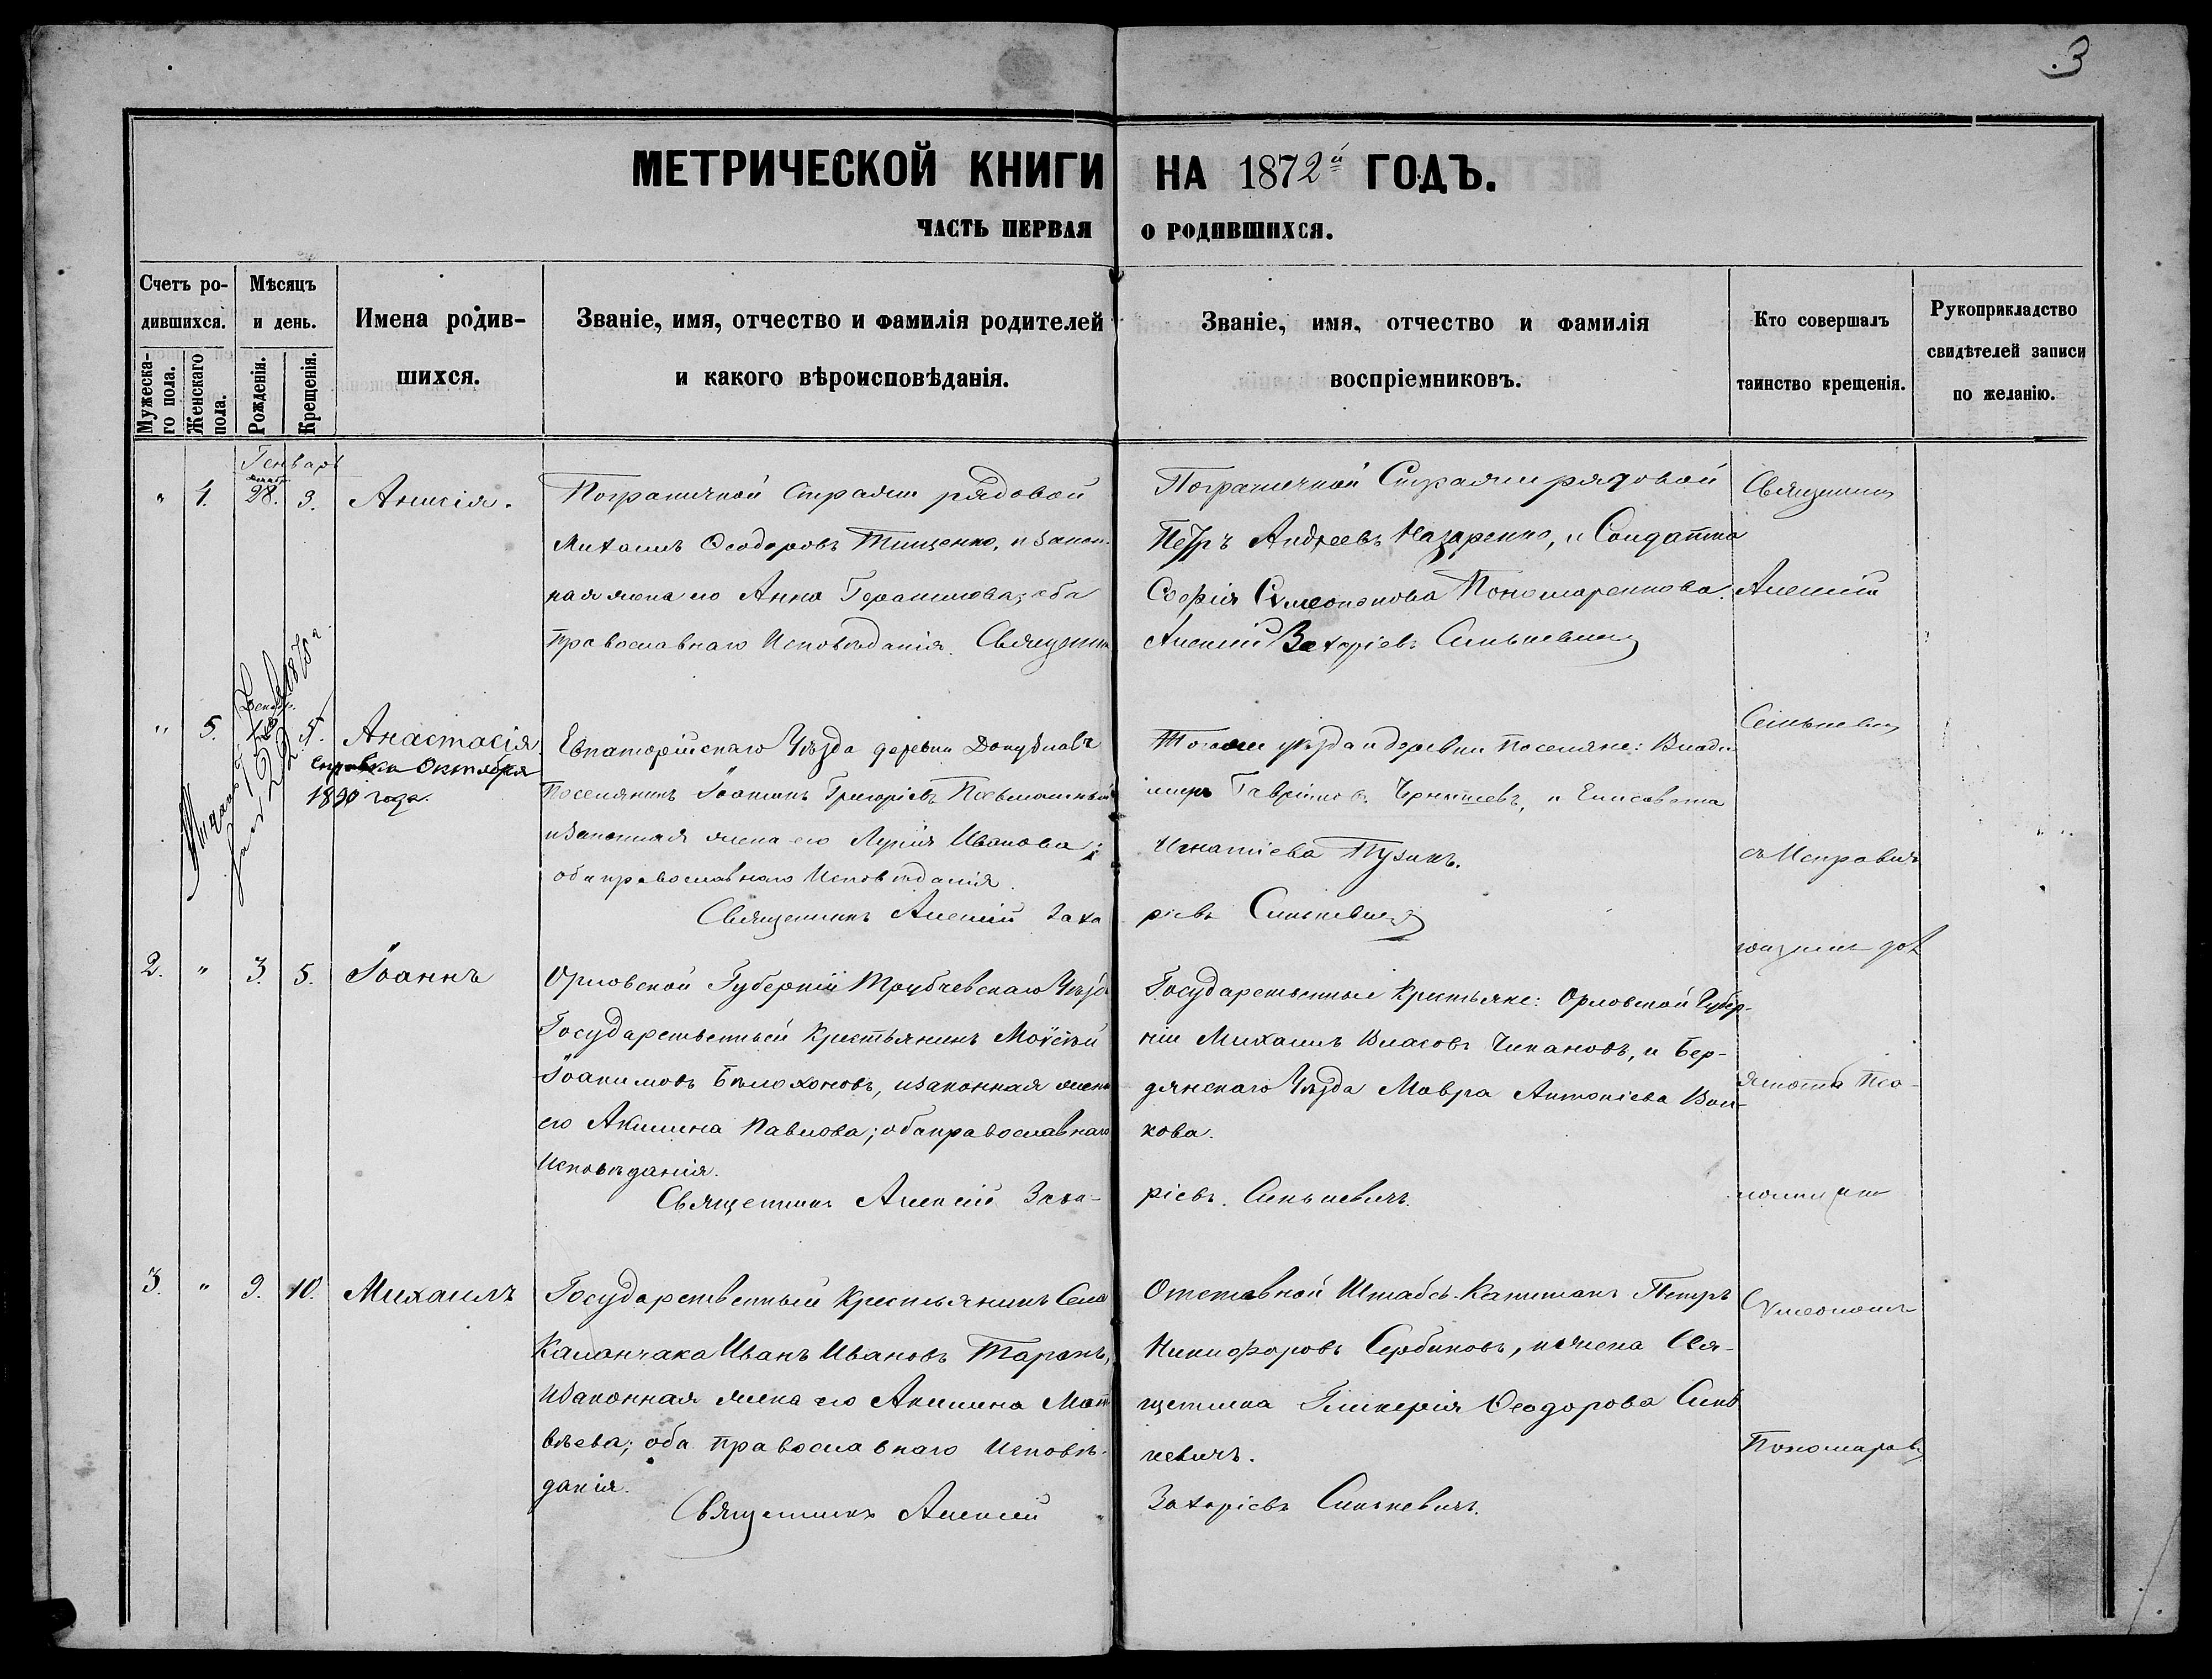 3
МЕТРИЧЕСКОЙ КНИГИ НА 1872й ГОДЪ.
ЧАСТЬ ПЕРВАЯ О РОДИВШИХСЯ.
Счетъ ро-
дившихся.
Мужеска-
го пола.
Женскаго
пола.
Мѣсяцъ
и день.
Рожденія.
Крещенія.
Имена родив-
шихся.
Званіе, имя, отчество и фамилія родителей
и какого вѣроисповѣданія.
Званіе, имя, отчество и фамилія
воспріемниковъ.
Кто совершалъ
таинство крещенія.
Рукоприкладство
свидѣтелей записи
по желанію.
Генварь
" 1. 28. 3. Анисія.
Пограничной Стражи рядовой
Михаилъ Ѳеодоровъ Тищенко, и закон-
ная жена его Анна Герасимова; оба
православнаго Исповѣданія. Священникъ
Пограничной Стражи рядовой
Петръ Андреевъ Назаренко, и Солдатка
Софія Сѵмеонова Пономаренкова.
Алексій Захаріевъ Синькевичъ
" 5. 5. Анастасія
Справка Октября
1890 года.
Евпаторійскаго Уѣзда деревни Донузлавъ
Поселянинъ Іоаннъ Григоріевъ
и законная жена его Лукія Иванова;
оба православнаго Исповѣданія.
Священникъ Алексій Заха
Тогоже уѣзда и деревни Поселяне: Влади-
миръ Гавріиловъ Чернышевъ, и Елисавета
Игнатіева Пузикъ.
ріевъ Синькевичъ
2. " 3. 5. Іоаннъ
Орловской Губерніи Трубчевскаго Уѣзда
Государственный Крестьянинъ Моѵсей
Іоакимовъ Бѣлохоновъ, и законная жена
его Акилина Павлова; оба православнаго
Исповѣданія.
Священникъ Алексій Заха-
Государственные Крестьяне: Орловской Губер-
ніи Михаилъ Власовъ Чипановъ, и Бер-
дянскаго Уѣзда Мавра Антоніева Вол-
кова.
ріевъ. Синькевичъ.
3. " 9. 10. Михаилъ
Государственный Крестьянинъ Села
Каланчака Иванъ Ивановъ Таранъ,
и законная жена его Акилина Мат-
вѣева; оба православнаго Исповѣ-
данія.
Священникъ Алексій
Отставной Штабсъ-Капитанъ Петръ
Никифоровъ Сербиновъ, и жена Свя-
щенника Гликерія Ѳеодорова Синь
кевичъ.
Захаріевъ Синькевичъ.
Священникъ
Алексій
Синькевичъ
съ Исправля
ющимъ дол
жность Пса-
ломщика
Сѵмеономъ
Пономаревъ